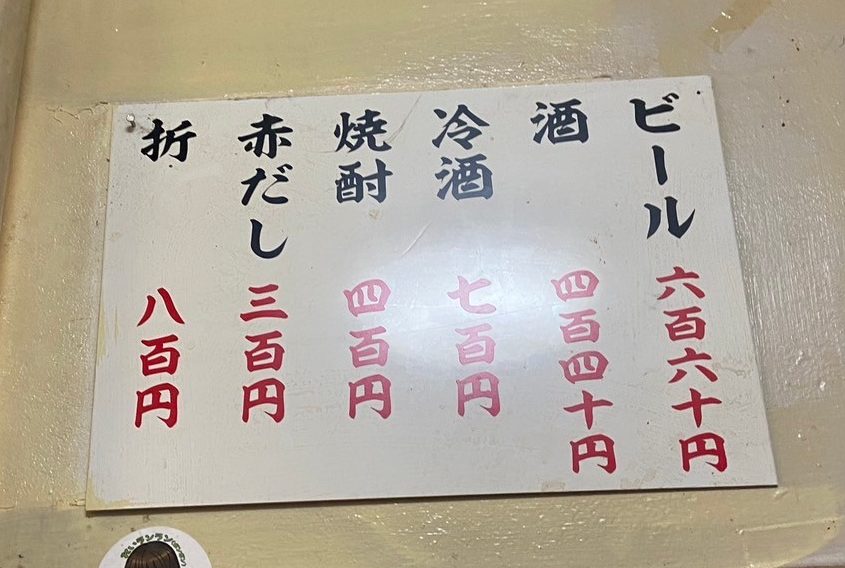 ビール 六百六十円
酒 四百四十円
冷酒 七百円
焼酎 四百円
赤だし 三百円
折 八百円